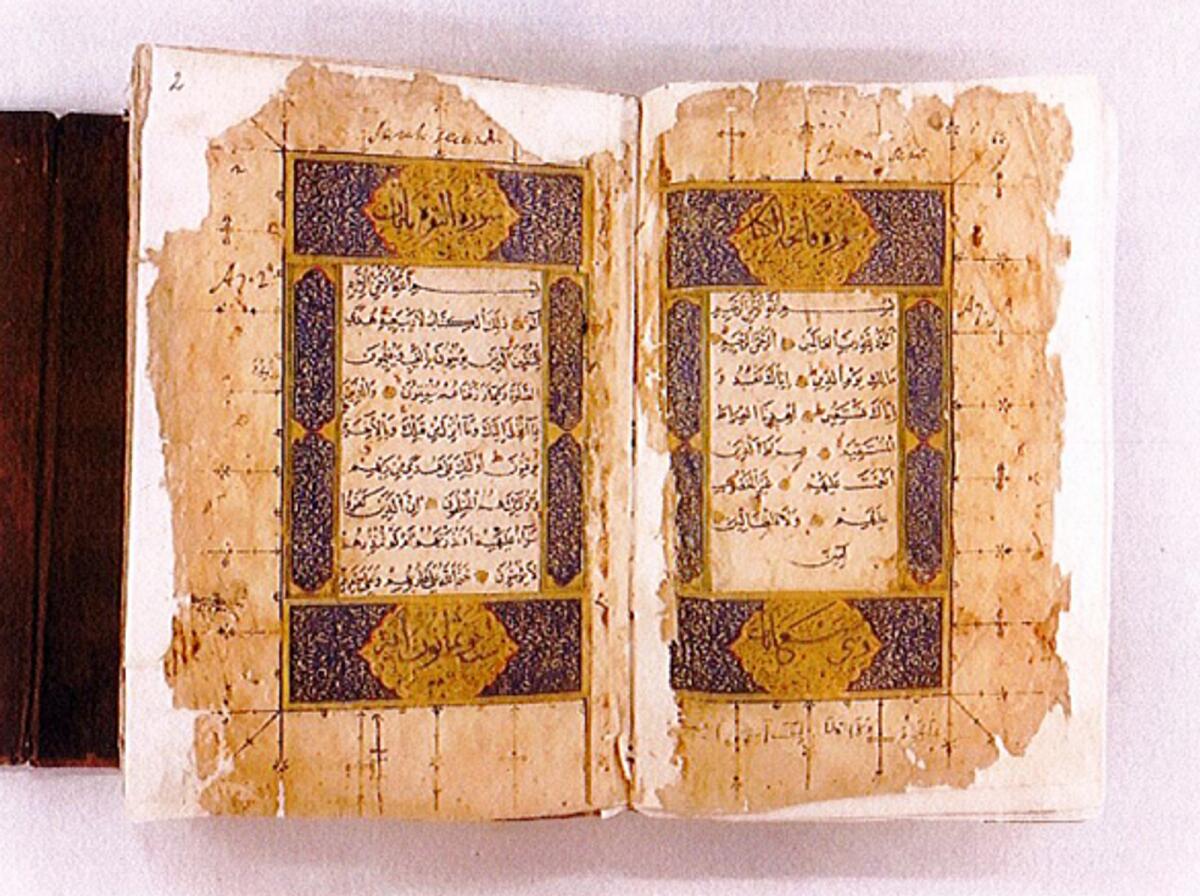 سورة فاتحة الكتاب
بسم الله الرحمن الرحيم
الحمد لله رب العالمين الرحمن الرحيم
مالك يوم الدين إياك نعبد و
إياك نستعين اهدنا الصراط
المستقيم صراط الذين
أنعمت عليهم غير المغضوب
عليهم ولا الضالين
آمين
وهي سبع آيات
2
Surah secunda
سورة البقرة مايتان
بسم الله الرحمن الرحيم
الم ذلك الكتاب لا ريب فيه هدى
للمتقين الذين يؤمنون بالغيب ويقيمون
الصلوة ومما رزقناهم ينفقون والذين
بما أنزل إليك وما أنزل من قبلك وبالآخرة
هم يوقنون أولئك على هدى من ربهم
وأولئك هم المفلحون إن الذين كفروا
سواء عليهم أأنذرتهم أم لم تنذرهم
لا يؤمنون ختم الله على قلوبهم وعلى
وست وثمانون آية